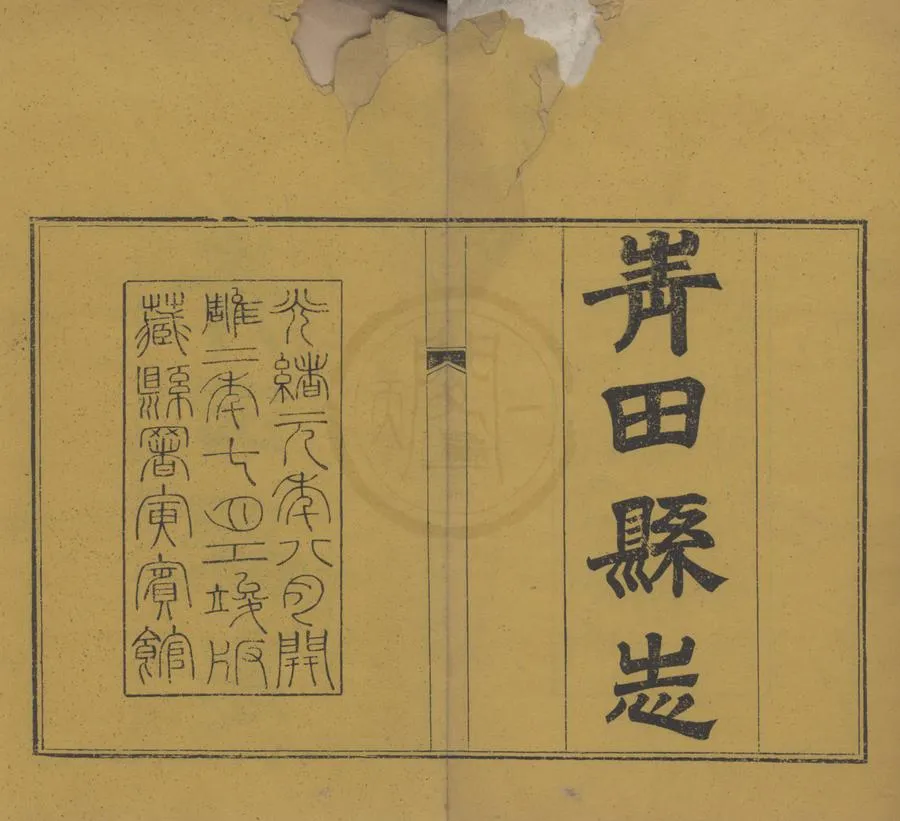 青田縣志
光緒元年八月開
雕二年七月工竣版
藏縣署寅賓館